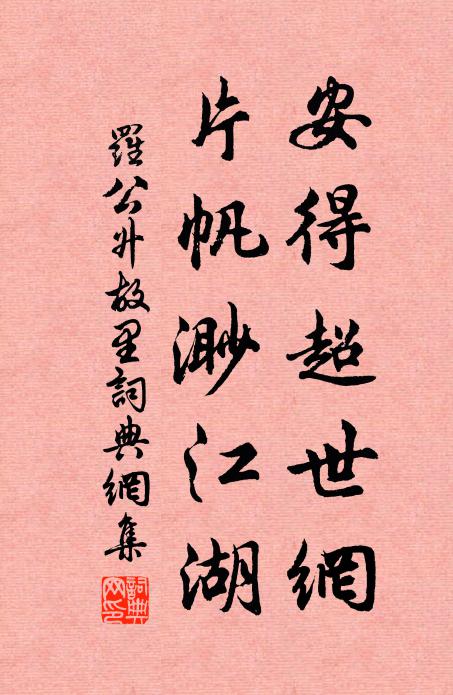 安得超世網
片帆渺江湖
羅公升故里詞典網集
詞典網印